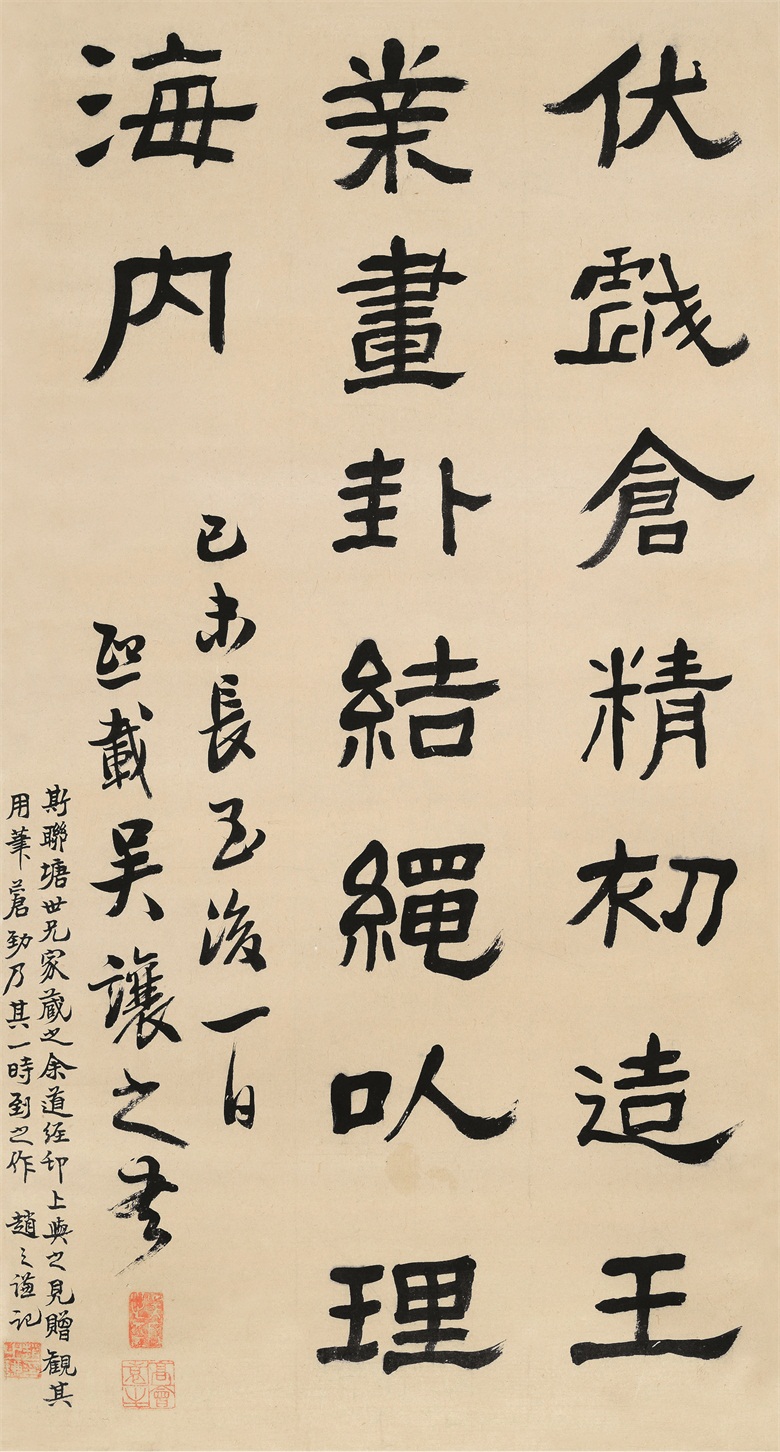 伏戲倉精初造王
業畫卦結繩㕥理
海内
己未長至後一日
熙載吳讓之書
斯聯塘世兄家藏之余道經邗上與之見贈觀其
用筆蒼勁乃其一時到之作 趙之謙記